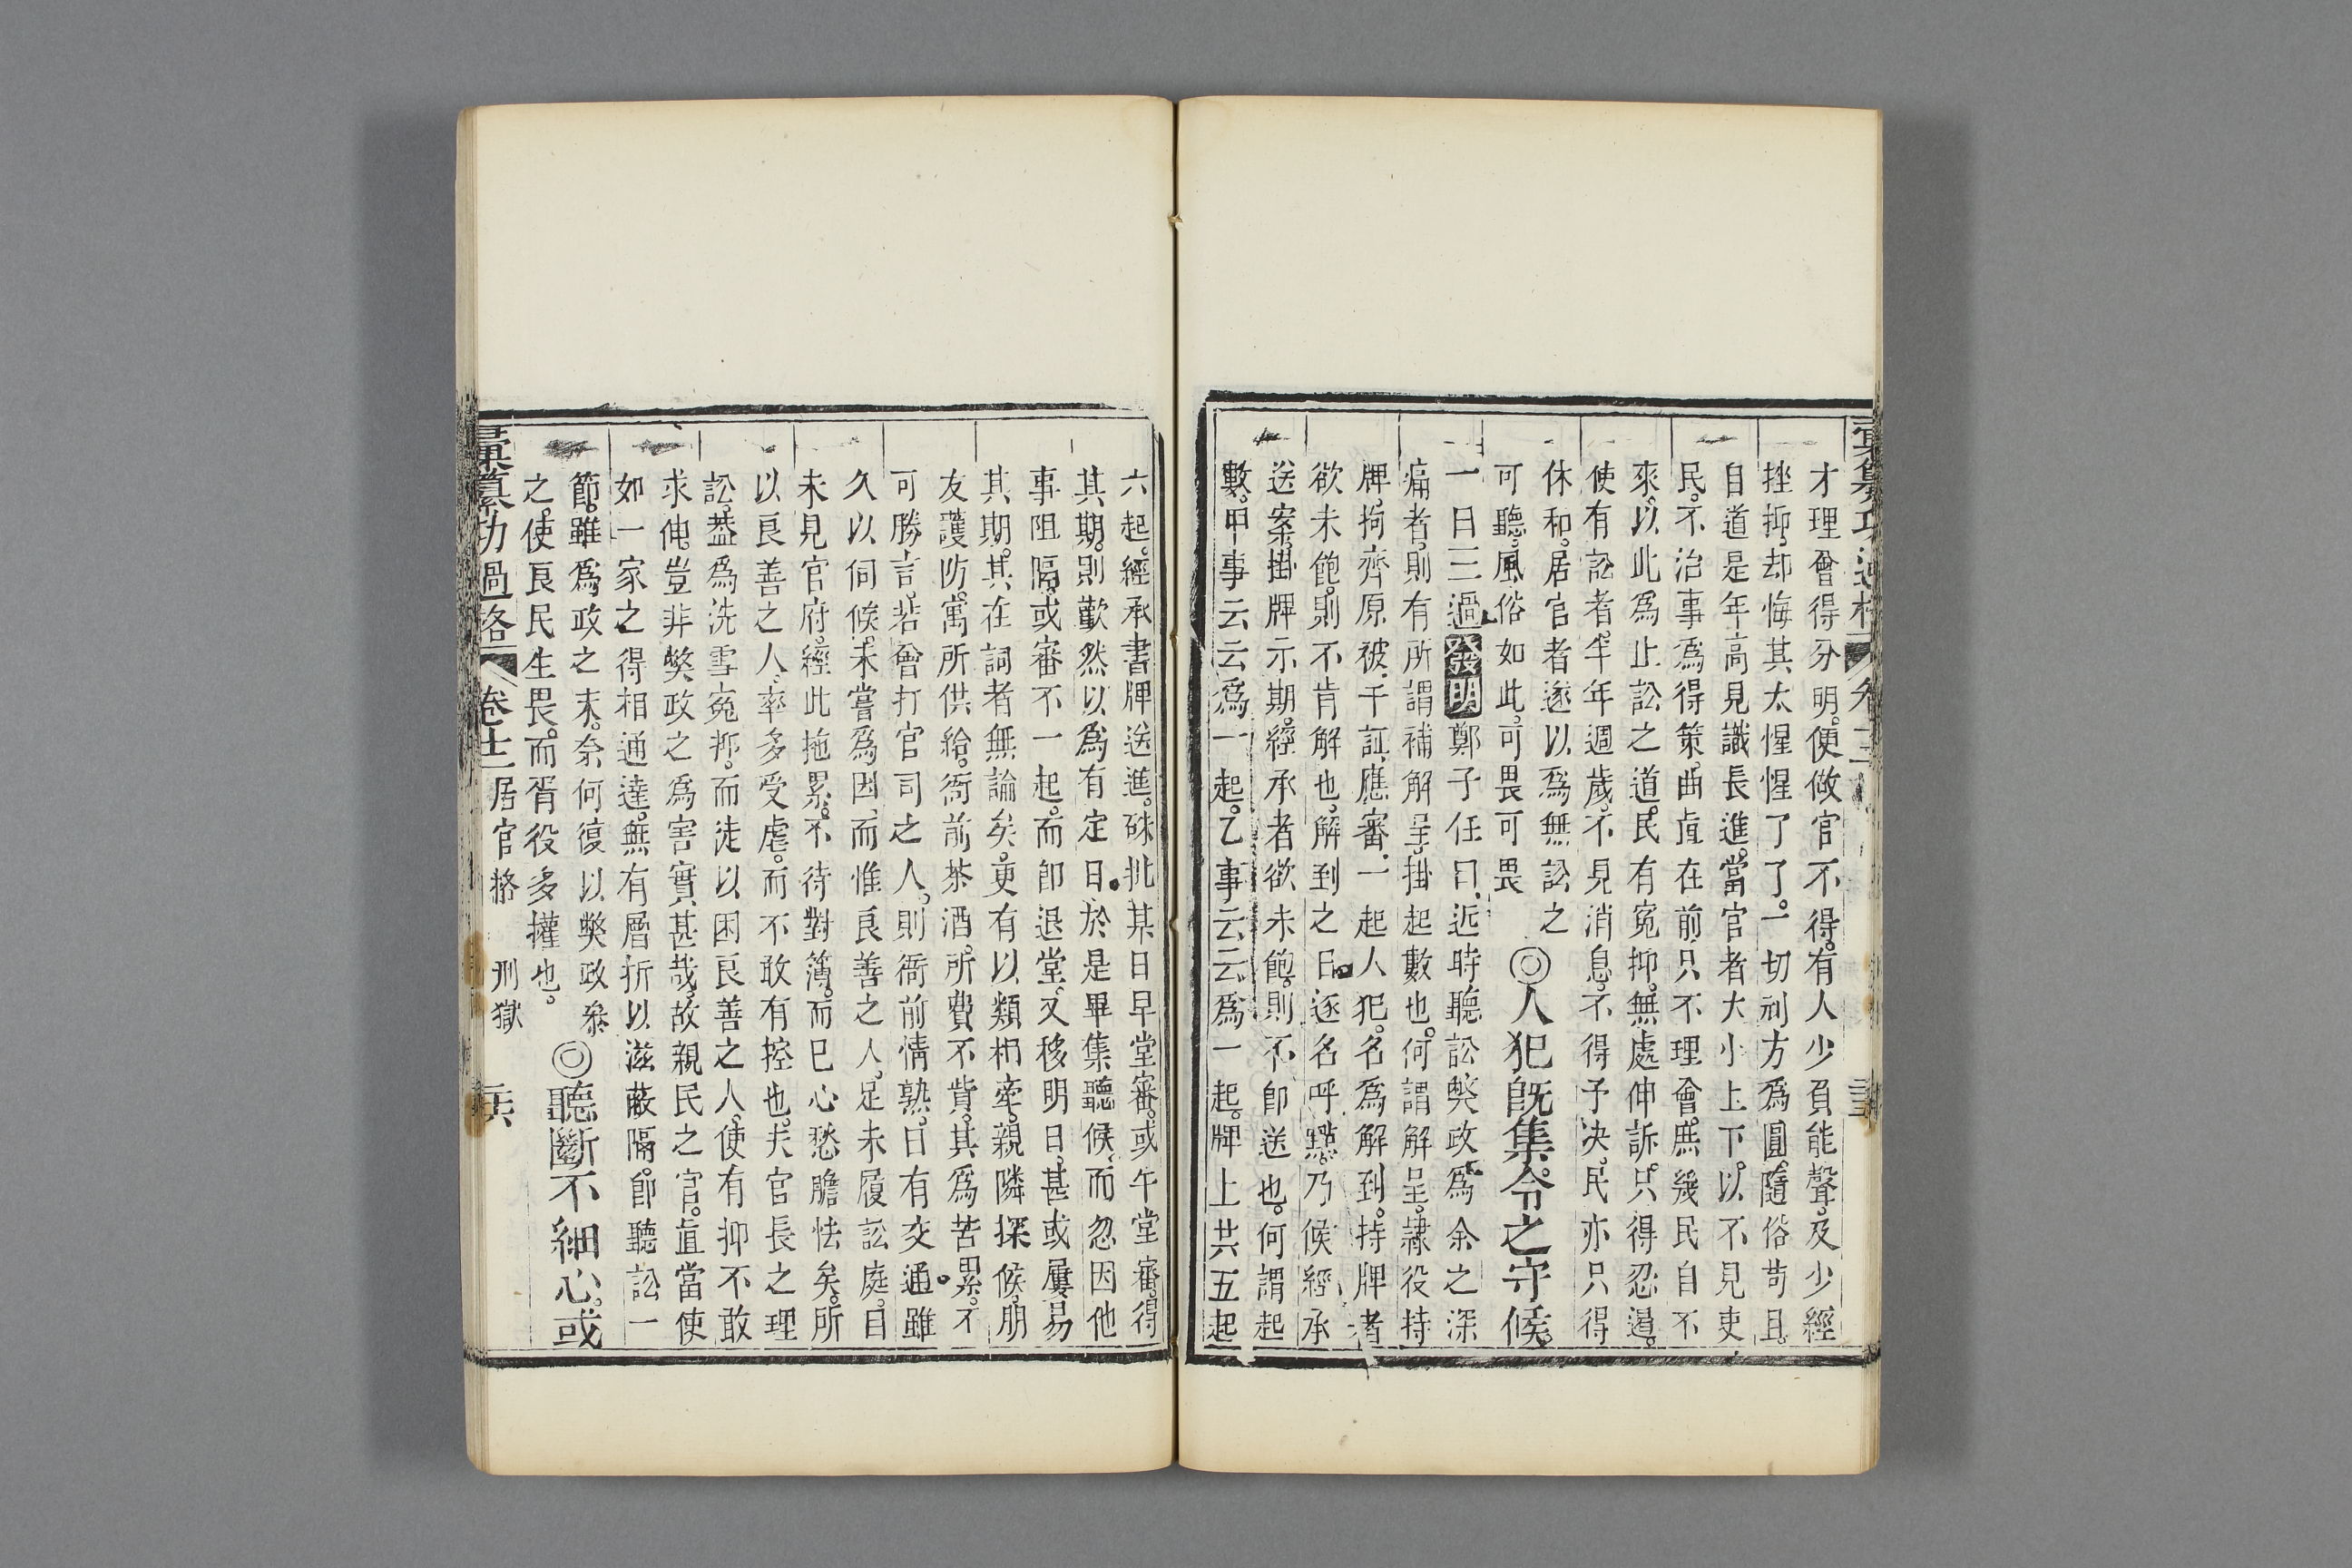 才理會得分明。便做官不得。有人少負能聲。及少經
挫抑。却悔其太惺惺了了。一切刓方為圓。隨俗苟且。
自道是年高見識長進。當官者大小上下。以不見吏
民。不治事為得策。曲直在前。只不理會。庶幾民自不
來。以此為止訟之道。民有寃抑。無處伸訴。只得忍過。
使有訟者。半年週歲。不見消息。不得予决。民亦只得
休和。居官者遂以為無訟之
可聽。風俗如此。可畏可畏
◎人犯既集。令之守候。
一日三過發明鄭子任曰。近時聽訟獘政。為余之深
痛者。則有所謂補解呈。掛起數也。何謂解呈。隷役持
牌。拘齊原被干証。應審一起人犯。名為解到。持牌者
欲未飽。則不肯解也。解到之日。逐名呼點。乃候經承
送案。掛牌示期。經承者欲未飽。則不即送也。何謂起
數。甲事云云為一起。乙事云云為一起。牌上共五起
六起。經承書牌送進。硃批某日早堂審。或午堂審。得
其期。則歡然以為有定日。於是畢集聽候。而忽因他
事阻隔。或審不一起。而即退堂。又移明日。甚或屢易
其期。其在詞者無論矣。更有以類相牽。親隣探候。朋
友護防。寓所供給。衙前茶酒。所費不貲。其為苦累。不
可勝言。若曾打官司之人。則衙前情熟。日有交通。雖
久以伺候。未嘗為因。而惟良善之人。足未履訟庭。目
未見官府。經此拖累。不待對簿。而已心愁膽怯矣。所
以良善之人。率多受虐。而不敢有控也。夫官長之理
訟。葢為洗雪寃抑。而徒以困良善之人。使有抑不敢
求伸。豈非獘政之為害實甚哉。故親民之官。直當使
如一家之得相通達。無有層折以滋蔽隔。即聽訟一
節。雖為政之末。奈何復以獘政參
之。使良民生畏。而胥役多權也。
◎聽斷不細心。或
彙纂功過格 卷十二 居官格 刑獄